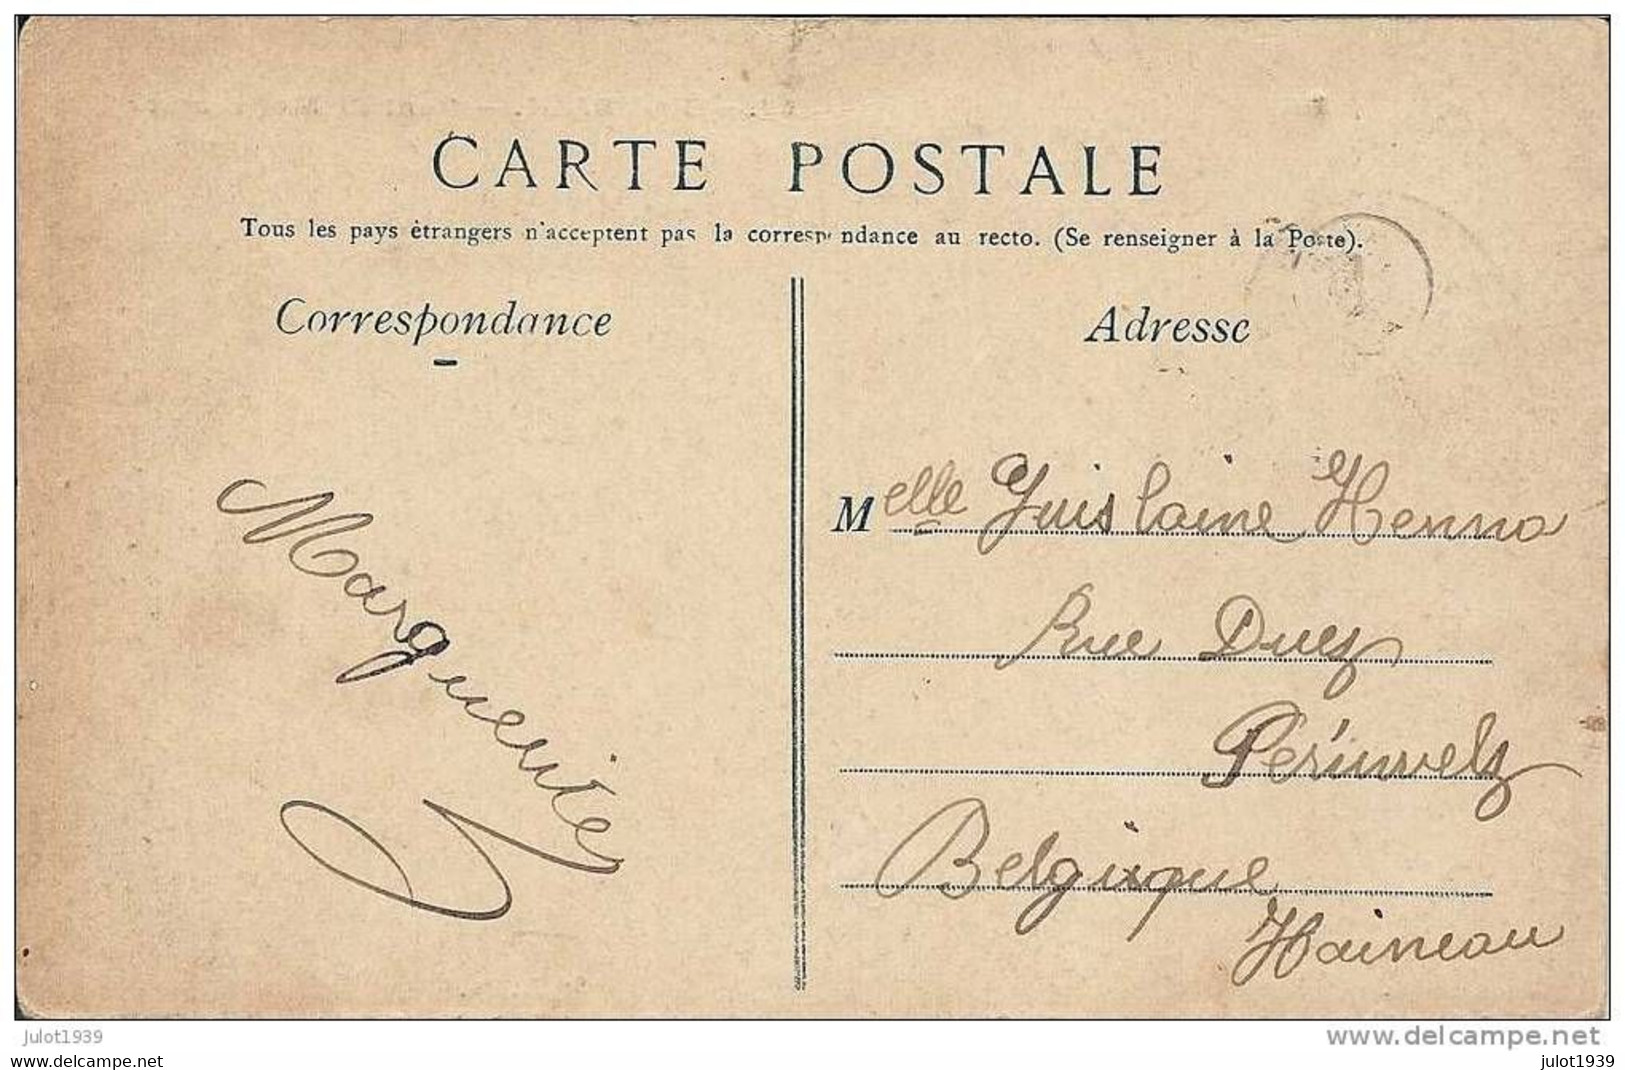 CARTE POSTALE
Tous les pays étrangers n'acceptent pas la correspondance au recto. (Se renseigner à la Poste).
Correspondance
Adresse
Marguerite
Melle Guislaine Henno
Rue Duez
Péruwelz
Belgique
Haineau
julot1939
www.delcampe.net
julot1939.delcampe.net
julot1939